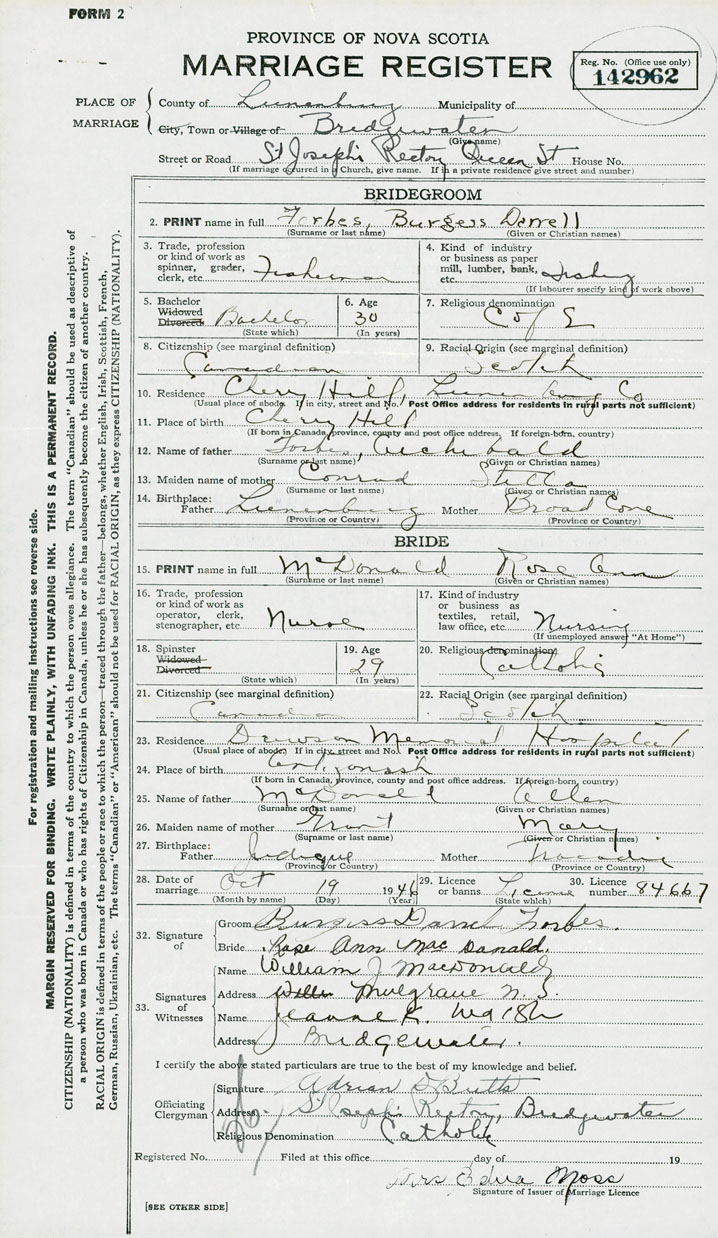 FORM 2
PROVINCE OF NOVA SCOTIA
MARRIAGE REGISTER
Reg. No. (Office use only)
142962
PLACE OF MARRIAGE
County of Lunenburg Municipality of
City, Town or Village of Bridgewater
(Give name)
Street or Road St Joseph's Rectory Queen St House No.
(If marriage occurred in a Church, give name. If in a private residence give street and number)
BRIDEGROOM
2. PRINT name in full Forbes, Burgess Darrell
(Surname or last name) (Given or Christian names)
3. Trade, profession or kind of work as spinner, grader, clerk, etc. Fisherman
4. Kind of industry or business as paper mill, lumber, bank, etc. Fishing
(If labourer specify kind of work above)
5. Bachelor Widowed Divorced Bachelor
(State which)
6. Age 30
(In years)
7. Religious denomination C of E
8. Citizenship (see marginal definition) Canadian
9. Racial Origin (see marginal definition) Scotch
10. Residence Cherry Hill, Lunenburg Co
(Usual place of abode. If in city, street and No. Post Office address for residents in rural parts not sufficient)
11. Place of birth Cherry Hill
(If born in Canada, province, county and post office address. If foreign-born, country)
12. Name of father Forbes, Archibald
(Surname or last name) (Given or Christian names)
13. Maiden name of mother Conrad Stella
(Surname or last name) (Given or Christian names)
14. Birthplace: Father Lunenburg Mother Broad Cove
(Province or Country) (Province or Country)
BRIDE
15. PRINT name in full McDonald Rose Ann
(Surname or last name) (Given or Christian names)
16. Trade, profession or kind of work as operator, clerk, stenographer, etc. Nurse
17. Kind of industry or business as textiles, retail, law office, etc. Nursing
(If unemployed answer "At Home")
18. Spinster Widowed Divorced
(State which)
19. Age 29
(In years)
20. Religious denomination Catholic
21. Citizenship (see marginal definition) Canadian
22. Racial Origin (see marginal definition) Scotch
23. Residence Dawson Memorial Hospital
(Usual place of abode. If in city, street and No. Post Office address for residents in rural parts not sufficient)
24. Place of birth Antigonish
(If born in Canada, province, county and post office address. If foreign-born, country)
25. Name of father McDonald Allen
(Surname or last name) (Given or Christian names)
26. Maiden name of mother Grant Mary
(Surname or last name) (Given or Christian names)
27. Birthplace: Father Judique Mother Tracadie
(Province or Country) (Province or Country)
28. Date of marriage Oct 19 1946
(Month by name) (Day) (Year)
29. Licence or banns License
(State which)
30. Licence number 84667
32. Signature of
Groom Burgess Darrel Forbes.
Bride Rose Ann MacDonald.
33. Signatures of Witnesses
Name William J MacDonald
Address Mulgrave N.S.
Name Jeanne K. Walsh
Address Bridgewater.
I certify the above stated particulars are true to the best of my knowledge and belief.
Officiating Clergyman
Signature Adrian D Butts
Address St Joseph's Rectory, Bridgewater
Religious Denomination Catholic
Registered No. Filed at this office day of 19
Mrs Edna Moss
Signature of Issuer of Marriage Licence
[SEE OTHER SIDE]
For registration and mailing instructions see reverse side.
MARGIN RESERVED FOR BINDING. WRITE PLAINLY, WITH UNFADING INK. THIS IS A PERMANENT RECORD.
CITIZENSHIP (NATIONALITY) is defined in terms of the country to which the person owes allegiance. The term "Canadian" should be used as descriptive of
a person who was born in Canada or who has rights of Citizenship in Canada, unless he or she has subsequently become the citizen of another country.
RACIAL ORIGIN is defined in terms of the people or race to which the person—traced through the father—belongs, whether English, Irish, Scottish, French,
German, Russian, Ukrainian, etc. The terms "Canadian" or "American" should not be used for RACIAL ORIGIN, as they express CITIZENSHIP (NATIONALITY).